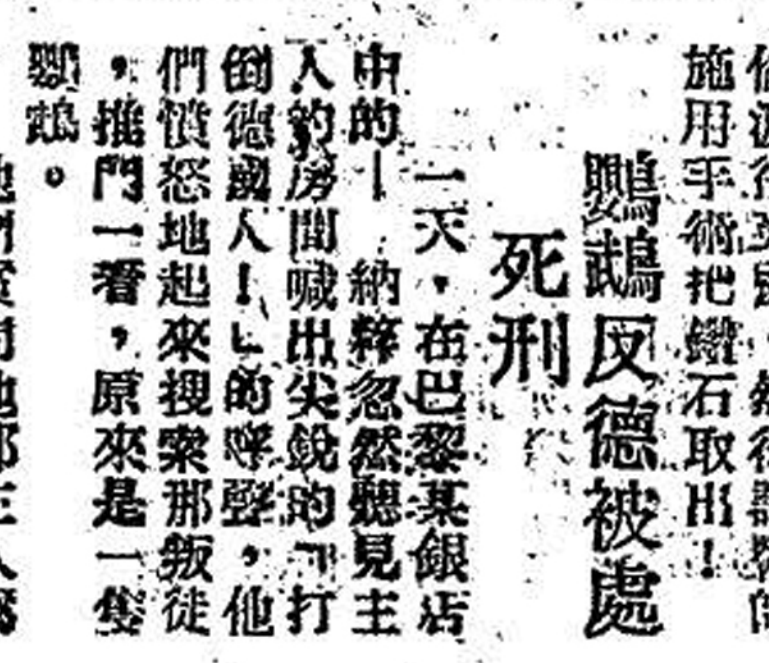 施用手術把鑽石取出！
鸚鵡反德被處
死刑
一天，在巴黎某銀店
中的｜納粹忽然聽見主
人的房間喊出尖銳的「打
倒德國人！」的呼聲，他
們憤怒地起來搜索那叛徒
，推門一看，原來是一隻
鸚鵡。